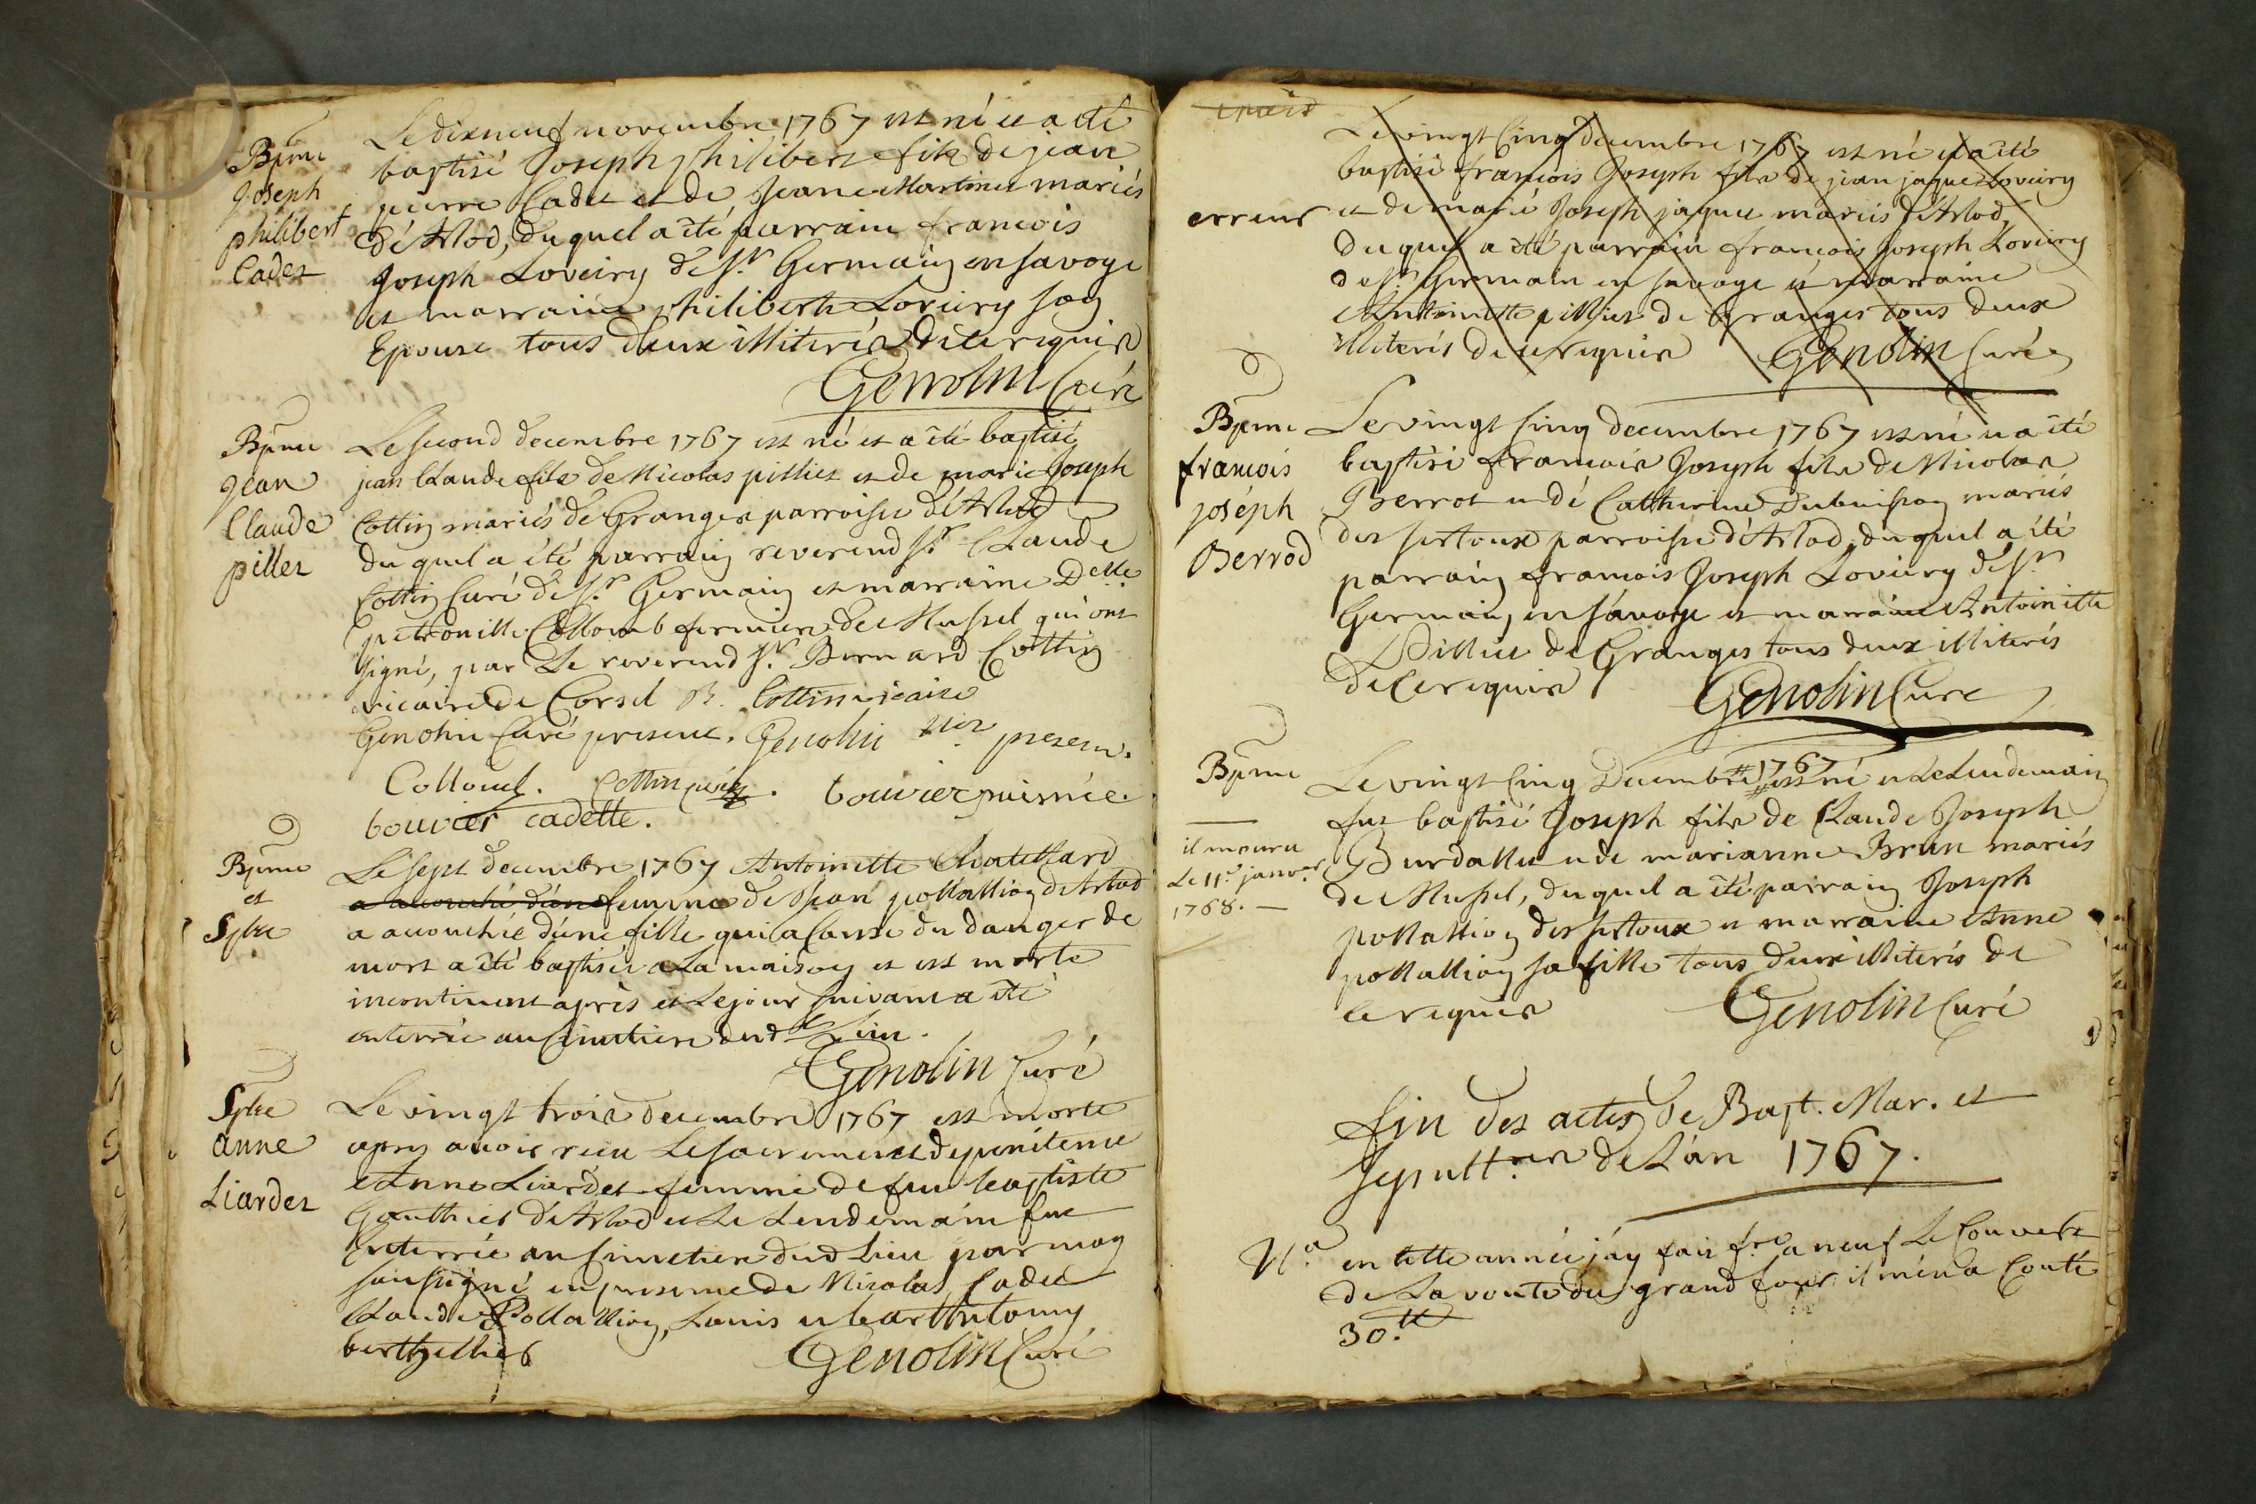 Bpme
Joseph
philibert
Cadet
Le dixneuf novembre 1767 est né et a été
baptisé Joseph philibert fils de jean
pierre Cadet et de Jeane Martinet mariés
d'Arlod, duquel a été parrain francois
Joseph Loveiry de St. Germain en savoye
et marraine philiberte Loveiry son
Epouse tous deux illiterés de ce requis
Genolin Curé
Bpme
jean
Claude
pillet
Le second decembre 1767 est né et a été baptisé
jean Claude fils de Nicolas pilliet et de marie Joseph
Cottin mariés de Granges parroisse d'Arlod
du quel a été parrain reverend Sr. Claude
Cottin Curé de St. Germain et marraine Delle
petronille Collomb fermiere de Mussel qui ont
signé, par Le reverend Sr. Bernard Cottin
vicaire de Corsel B. Cottin vicaire
Genolin Curé present. Genolin present.
Collomb. Cottin curé. bouvier puisnée.
bouvier cadette.
Bpme
et
Splre
Le sept decembre 1767 Antoinette Chatellard
a accouché d'une femme de Jean pollallion d'Arlod
a accouchée d'une fille qui a cause du danger de
mort a été baptisée a La maison et est morte
incontinent après et Le jour suivant a été
enterrée au Cimetiere dud. Lieu.
Genolin Curé
Splre
Anne
Liardet
Le vingt trois decembre 1767 est morte
apres avoir recu Le sacrement de penitence
Anne Liardet femme de feu baptiste
Gauthier d'Arlod et Le Lendemain fut
Enterrée au Cimetiere dud Lieu par moy
soussigné en presence de Nicolas Cadet
Claude Pollallion, Louis et barthelomy
berthellier
Genolin Curé
erreur
Le vingt Cinq decembre 1767 est né et a été
baptisé francois Joseph fils de jean jaque Loveiry
et de marie Joseph jaquet mariés d'Arlod,
du quel a été parrain francois Joseph Loveiry
de St. Germain en savoye et marraine
Antoinette pilliet de Granges tous deux
illiterés de ce requis Genolin Curé
Bpme
francois
joséph
Berrod
Le vingt Cinq decembre 1767 est né et a été
baptisé francois Joseph fils de Nicolas
Berrot et de Catherine Dubuisson mariés
des sertoux parroisse d'Arlod, du quel a été
parrain francois Joseph Loviery de St.
Germain en savoye et marraine Antoinette
Pilliet de Granges tous deux illiterés
de ce requis Genolin Curé
Bpme
il mourut
Le 11e. janver
1768.
Le vingt Cinq Decembre # 1767 # est né et Le Lendemain
fut baptisé Joseph fils de Claude Joseph
Burdallet et de marianne Brun mariés
de Mussel, du quel a été parrain Joseph
pollallion des sertoux et marraine Anne
pollallion sa fille tous deux illiterés de
ce requis Genolin Curé
fin des actes de Bapt. Mar. et
sepult.res de L'an 1767.
Na. en cette année j'ay fait fre. a neuf Le Couvert
de La voute du grand four il m'en a Couté
30.tt